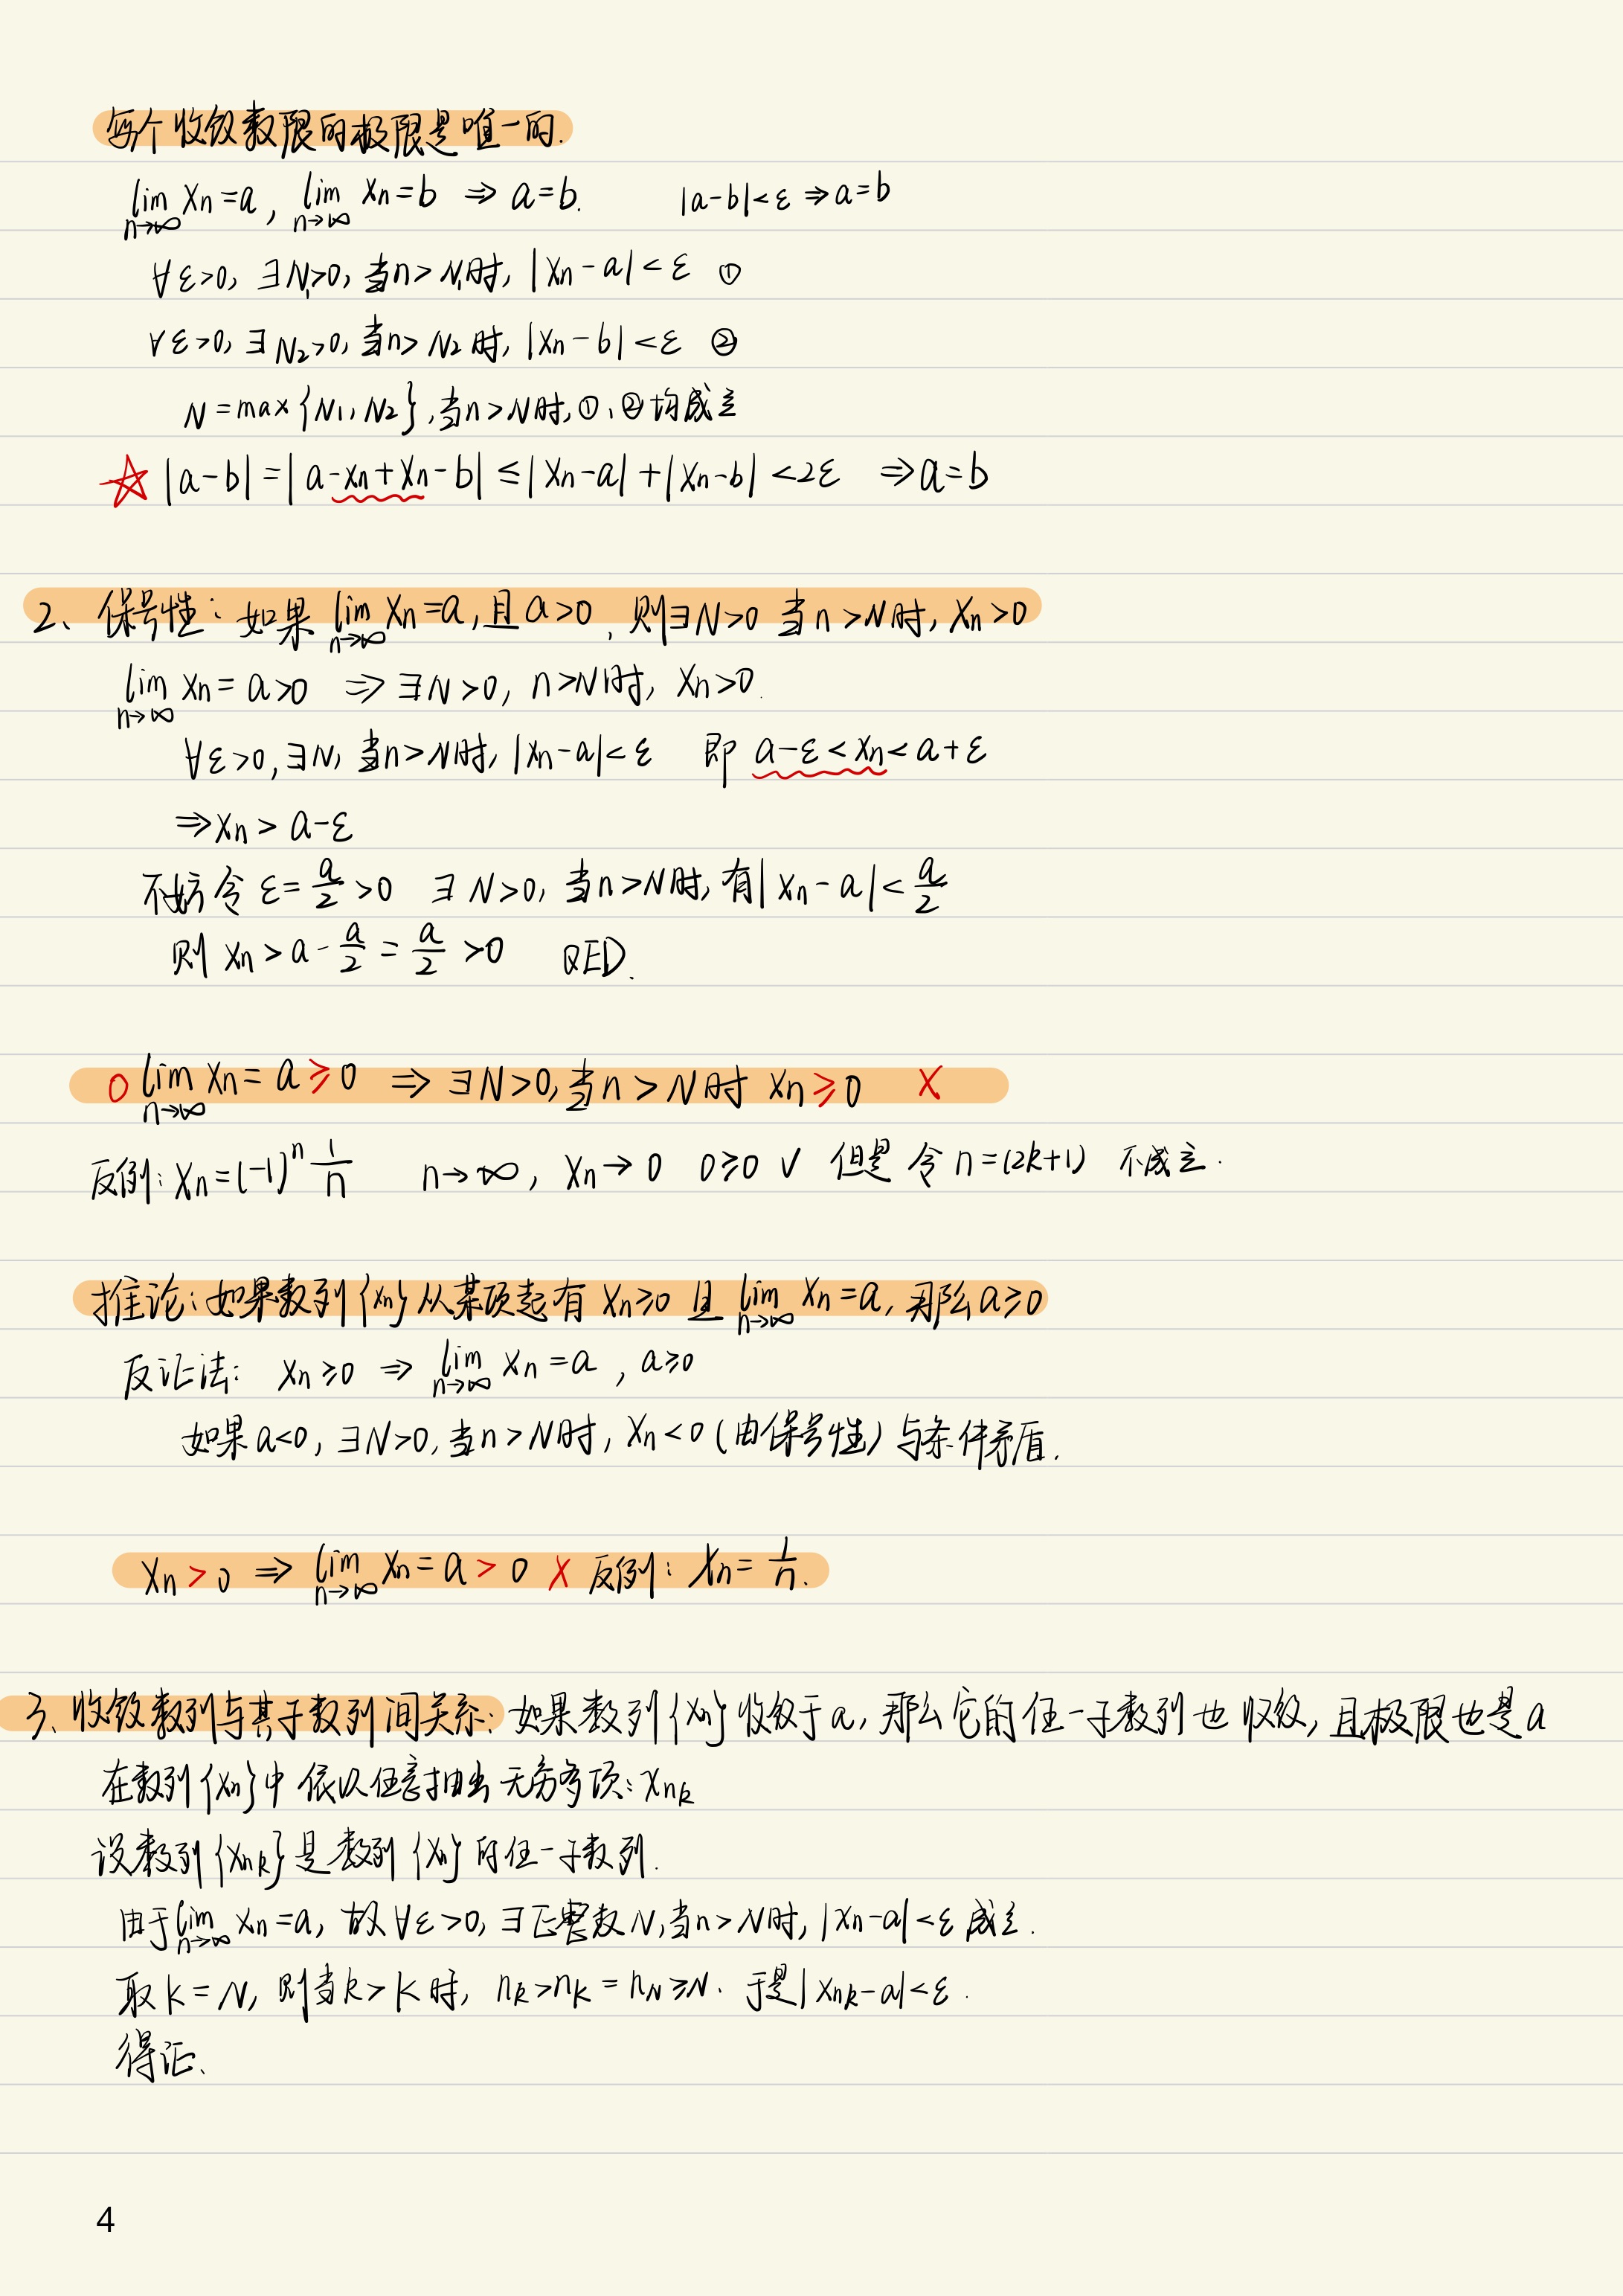 每个收敛数限的极限是唯一的.
lim n→∞ xn=a, lim n→∞ xn=b ⇒ a=b. |a-b|<ε ⇒a=b
∀ε>0, ∃N₁>0, 当n>N₁时, |xn-a|<ε ①
∀ε>0, ∃N₂>0, 当n>N₂时, |xn-b|<ε ②
N=max{N₁, N₂}, 当n>N时, ①、②均成立
☆ |a-b|=|a-xn+xn-b|≤|xn-a|+|xn-b|<2ε ⇒a=b
2、保号性: 如果 lim n→∞ xn=a, 且a>0, 则∃N>0 当n>N时, xn>0
lim n→∞ xn=a>0 ⇒∃N>0, n>N时, xn>0.
∀ε>0, ∃N, 当n>N时, |xn-a|<ε 即 a-ε<xn<a+ε
⇒xn>a-ε
不妨令 ε=a/2>0 ∃N>0, 当n>N时, 有|xn-a|<a/2
则 xn>a-a/2=a/2>0 QED.
○ lim n→∞ xn=a≥0 ⇒∃N>0, 当n>N时 xn≥0 ×
反例: xn=(-1)ⁿ 1/n n→∞, xn→0 0≥0 √ 但是 令n=(2k+1) 不成立.
推论: 如果数列{xn}从某项起有 xn≥0 且 lim n→∞ xn=a, 那么a≥0
反证法: xn≥0 ⇒ lim n→∞ xn=a, a≥0
如果a<0, ∃N>0, 当n>N时, xn<0 (由保号性) 与条件矛盾.
xn>0 ⇒ lim n→∞ xn=a>0 × 反例: xn=1/n.
3、收敛数列与其子数列间关系: 如果数列{xn}收敛于a, 那么它的任一子数列也收敛, 且极限也是a
在数列{xn}中依以任意抽出无穷多项: xnk
设数列{xnk}是数列{xn}的任一子数列.
由于lim n→∞ xn=a, 故∀ε>0, ∃正整数N, 当n>N时, |xn-a|<ε成立.
取K=N, 则当k>K时, nk>nK=nN≥N. 于是|xnk-a|<ε.
得证、
4